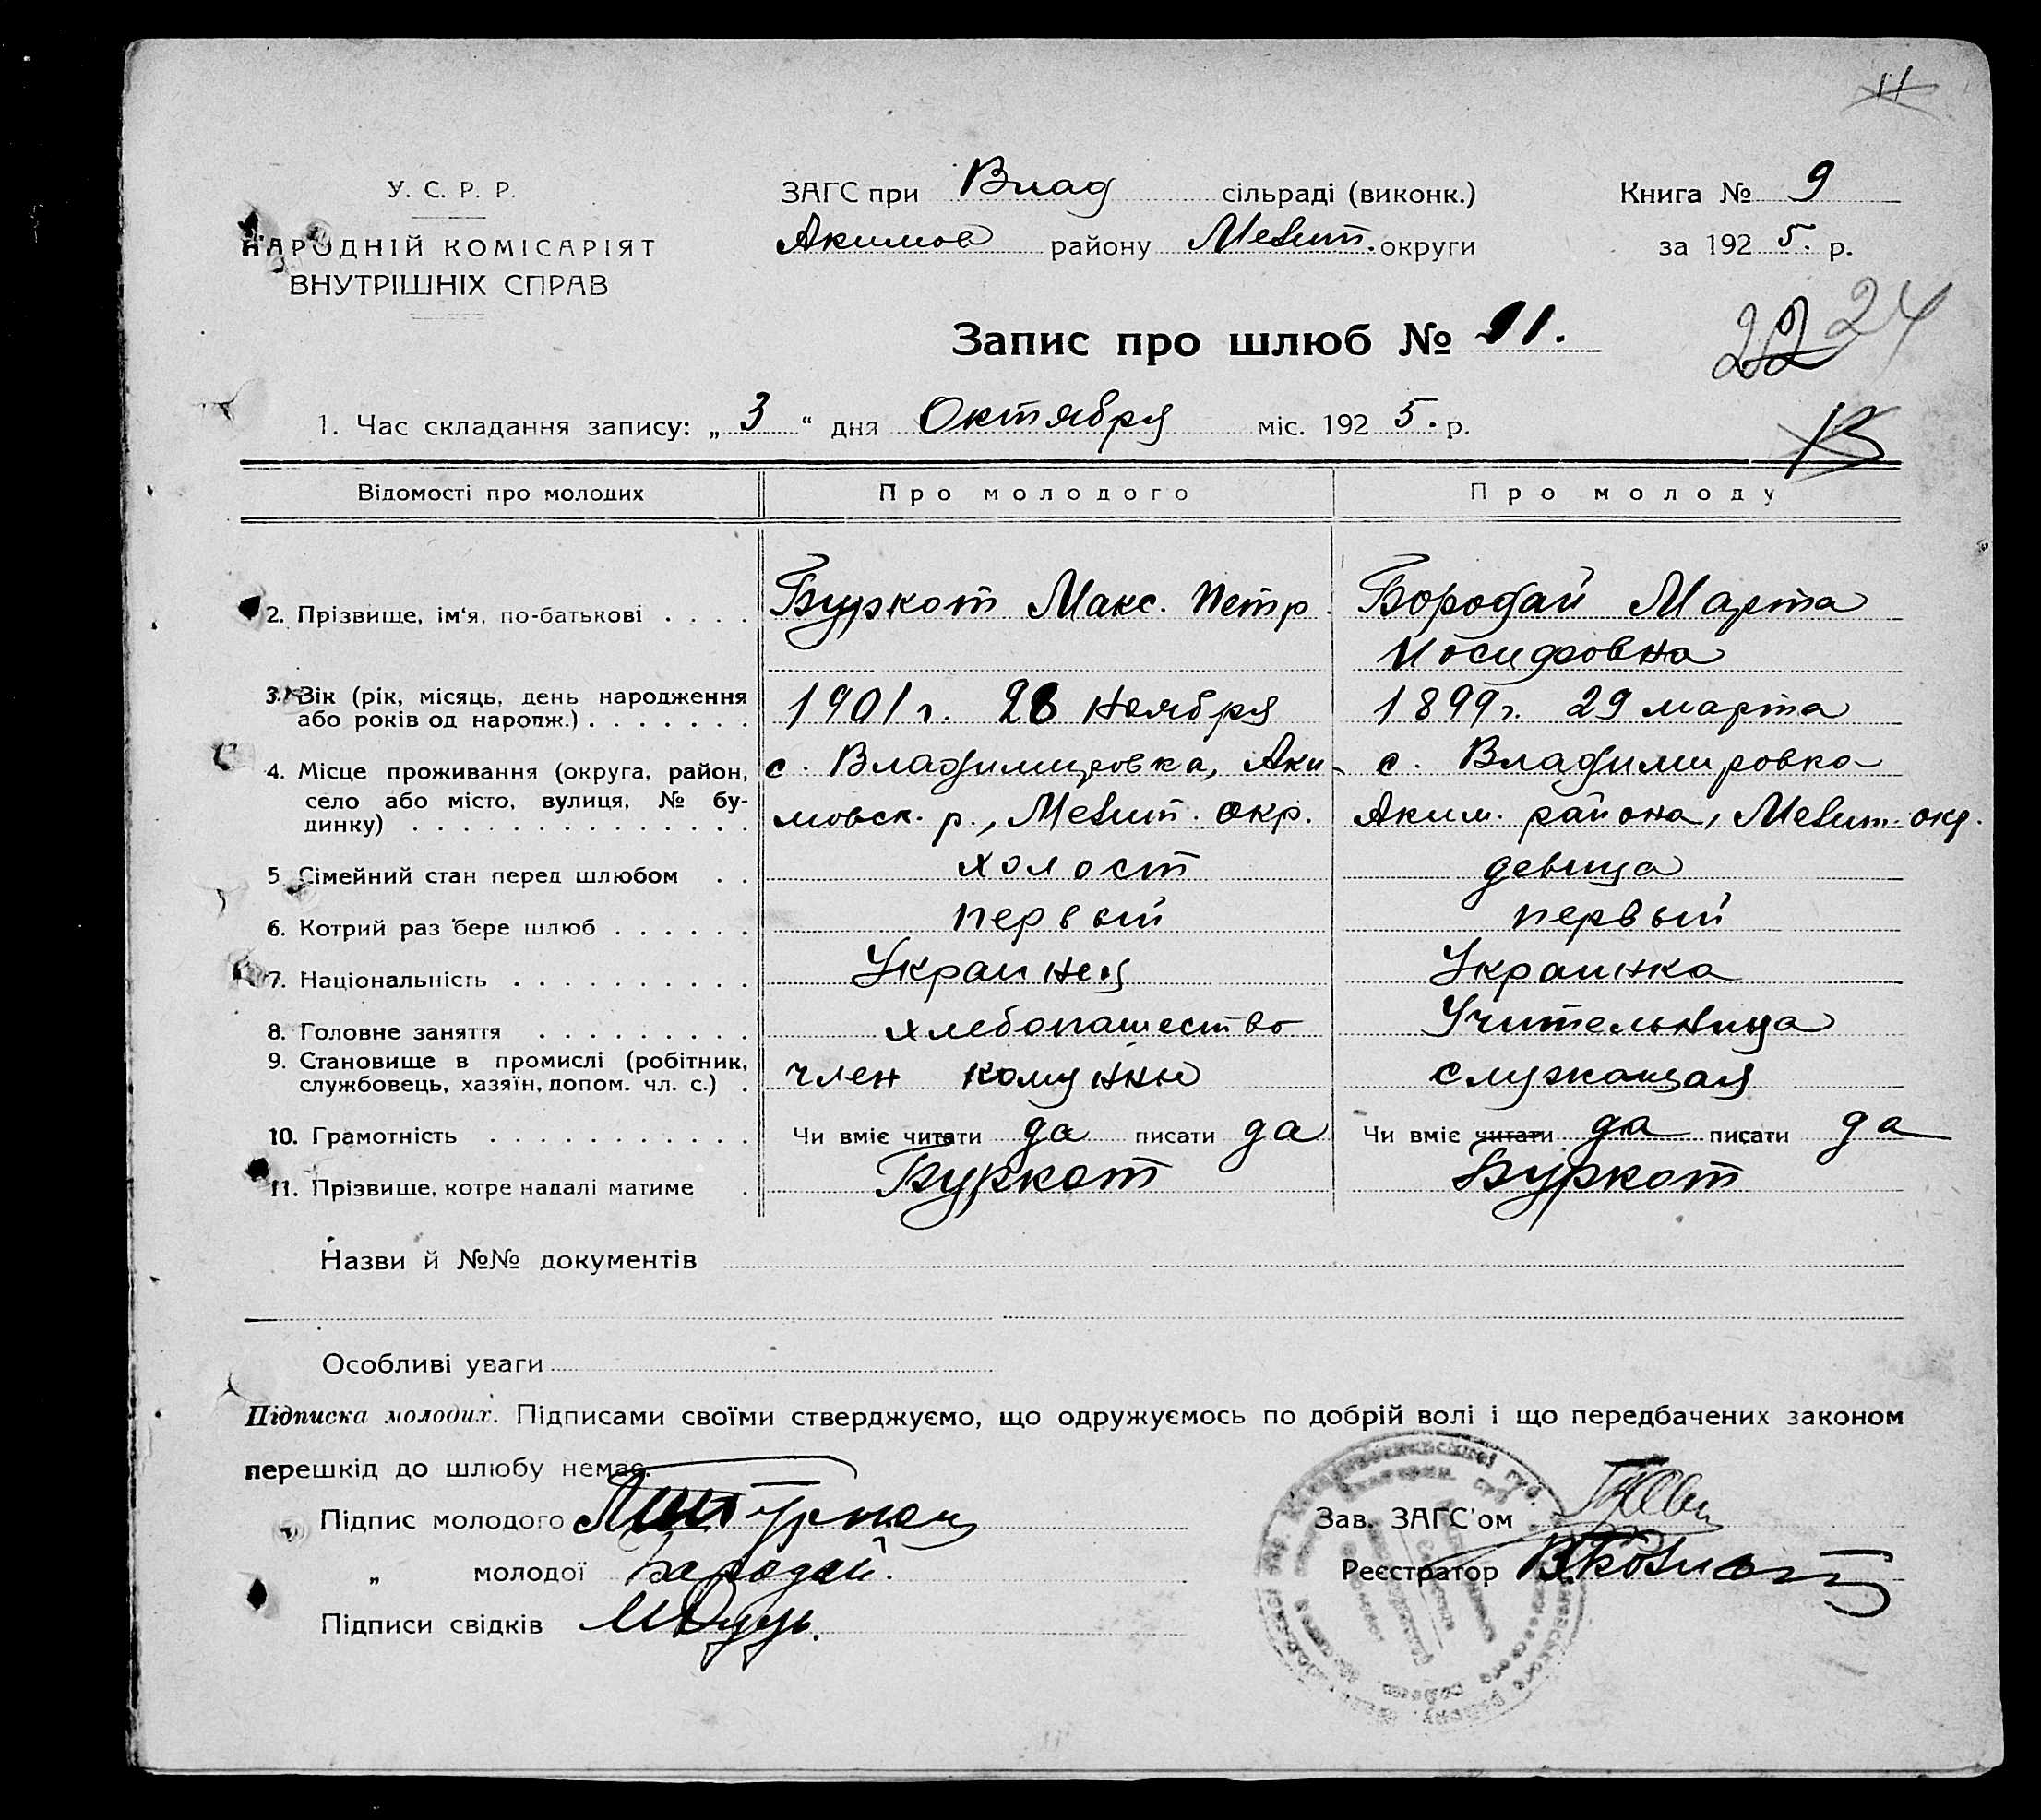 11
У. С. Р. Р.
НАРОДНІЙ КОМІСАРІЯТ
ВНУТРІШНІХ СПРАВ
ЗАГС при Влад сільраді (виконк.)
Акимов району Мелит. округи
Книга № 9
за 1925. р.
Запис про шлюб № 91.
22 24
1. Час складання запису: „3“ дня Октября міс. 1925. р.
13
Відомості про молодих Про молодого Про молоду
2. Прізвище, ім'я, по-батькові . . . . Буркот Макс. Петр. Бородай Марта
Иосифовна
3. Вік (рік, місяць, день народження
або років од народж.) . . . . . . . 1901 г. 28 ноября 1899 г. 29 марта
4. Місце проживання (округа, район, с. Владимировка, Аки- с. Владимировка
село або місто, вулиця, № бу-
динку) . . . . . . . . . . . . . . мовск. р., Мелит. окр. Аким. района, Мелит. окр.
5. Сімейний стан перед шлюбом . . холост девица
6. Котрий раз бере шлюб . . . . . . первый первый
7. Національність . . . . . . . . . . Украинец Украинка
8. Головне заняття . . . . . . . . . хлебопашество Учительница
9. Становище в промислі (робітник,
службовець, хазяїн, допом. чл. с.) . член комунны служащая
10. Грамотність . . . . . . . . . . . Чи вміє читати да писати да Чи вміє читати да писати да
11. Прізвище, котре надалі матиме . Буркот Буркот
Назви й №№ документів
Особливі уваги
Підписка молодих. Підписами своїми стверджуємо, що одружуємось по добрій волі і що передбачених законом
перешкід до шлюбу немає.
Підпис молодого
„ молодої Бародай.
Підписи свідків
Зав. ЗАГС'ом
Реєстратор